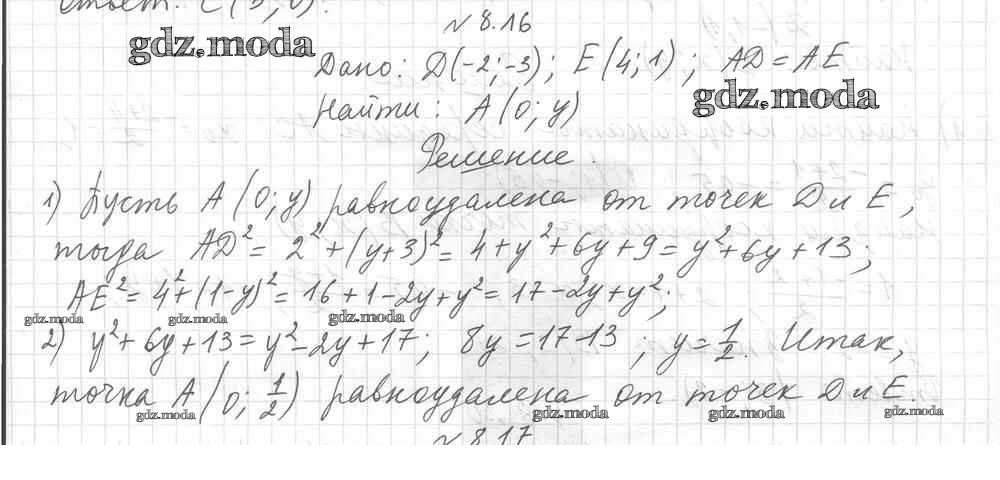 Ответ: C(3; 0).
№ 8.16
gdz.moda
Дано: D(-2; -3); E(4; 1); AD = AE
gdz.moda
Найти: A(0; y)
Решение.
1) Пусть A(0; y) равноудалена от точек D и E,
тогда AD² = 2² + (y+3)² = 4 + y² + 6y + 9 = y² + 6y + 13;
AE² = 4² + (1-y)² = 16 + 1 - 2y + y² = 17 - 2y + y²;
gdz.moda gdz.moda gdz.moda
2) y² + 6y + 13 = y² - 2y + 17; 8y = 17 - 13; y = 1/2. Итак,
точка A(0; 1/2) равноудалена от точек D и E.
gdz.moda gdz.moda gdz.moda gdz.moda gdz.moda
№ 8.17